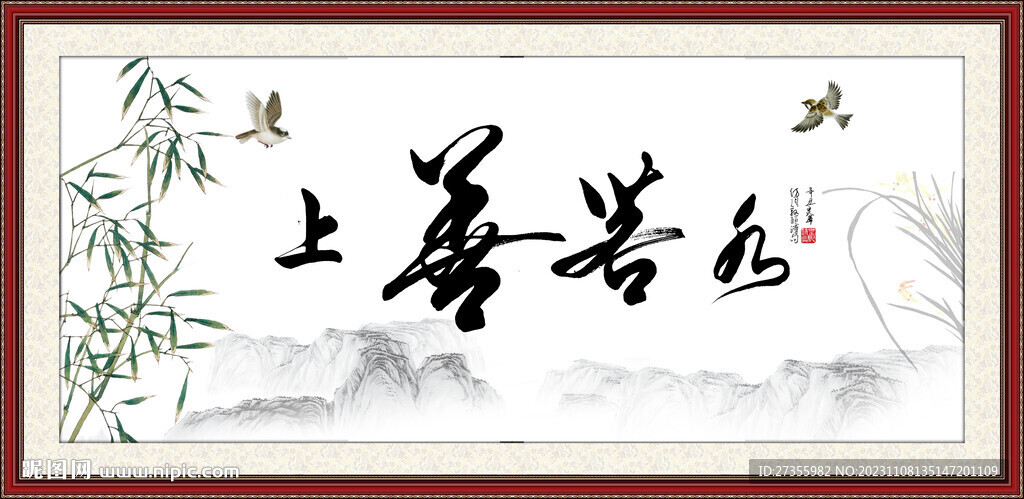 上善若水
昵图网 www.nipic.com
ID:27355982 NO:20231108135147201109